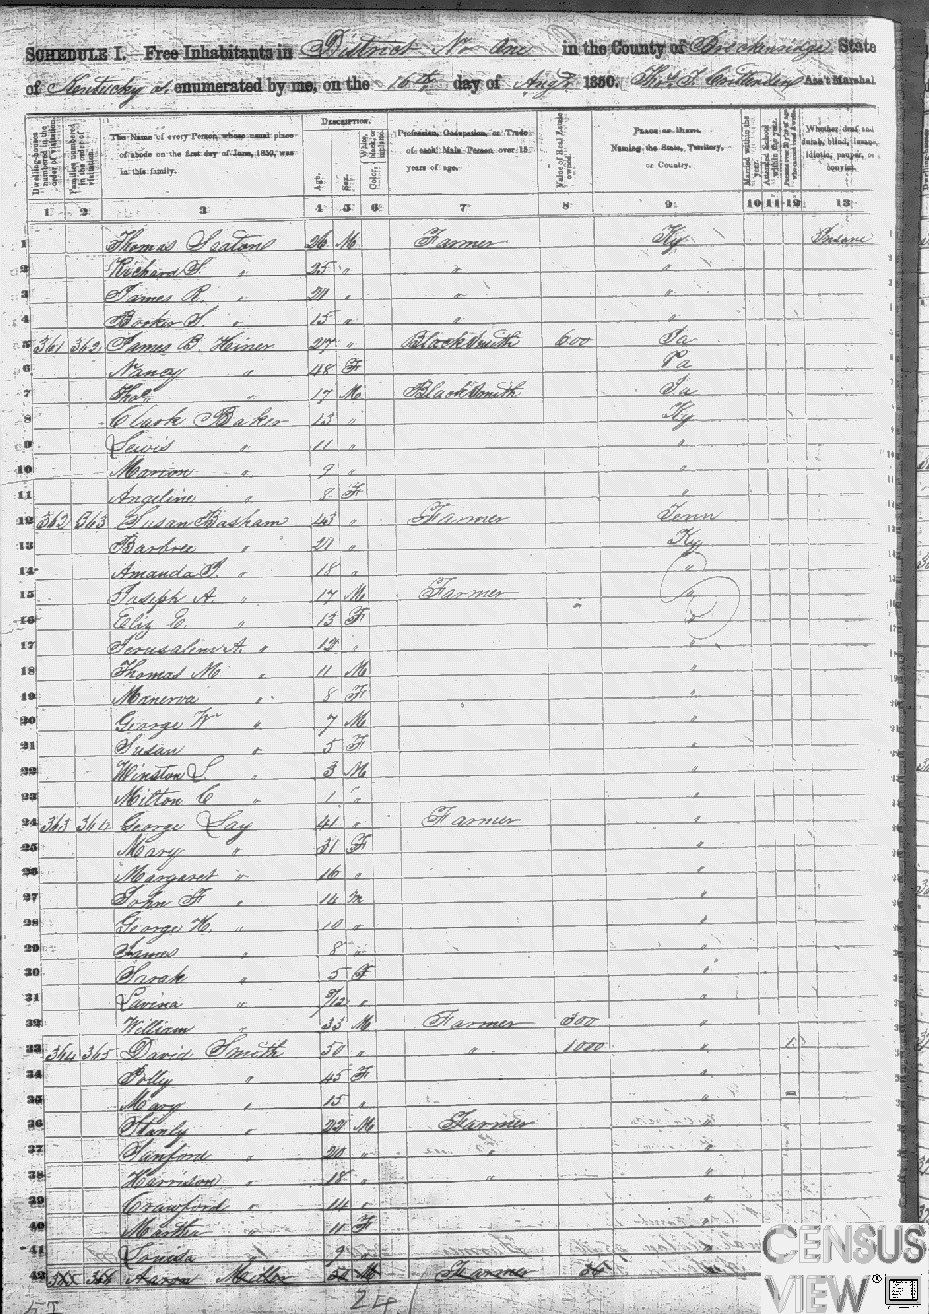 SCHEDULE I.—Free Inhabitants in District No One in the County of Breckenridge State
of Kentucky enumerated by me, on the 16th day of Augt 1850. Ass't Marshal
Dwelling-houses numbered in the order of visitation. Families numbered in the order of visitation. The Name of every Person, whose usual place of abode on the first day of June, 1850, was in this family. Description. Age. Sex. Color, White, black, or mulatto. Profession, Occupation, or Trade of each Male Person over 15 years of age. Value of Real Estate owned. Place of Birth. Naming the State, Territory, or Country. Married within the year. Attended School within the year. Whether deaf and dumb, blind, insane, idiotic, pauper, or convict.
1 2 3 4 5 6 7 8 9 10 11 12 13
1 Thomas Seatons 26 M Farmer Ky Insane
2 Richard S. " 25 " " "
3 James R. " 21 " " "
4 Booker S. " 15 " " "
5 361 362 James B. Heiner 27 " Blacksmith 600 Pa
6 Nancy " 48 F Pa
7 Thos " 17 M Blacksmith Pa
8 Clark Baker 13 " Ky
9 Lewis " 11 " "
10 Marion " 9 " "
11 Angeline " 8 F "
12 362 363 Susan Basham 43 " Farmer Tenn
13 " 21 " Ky
14 Amanda " 18 " "
15 Joseph A. " 17 M Farmer "
16 Eliz E. " 13 F "
17 Jerusalem A. " 12 " "
18 Thomas M " 11 M "
19 Manerva " 8 F "
20 George W " 7 M "
21 Susan " 5 F "
22 Winston L. " 3 M "
23 Milton C " 1 " "
24 363 364 George Lay 41 " Farmer "
25 Mary " 31 F "
26 Margaret " 16 " "
27 John F " 14 m "
28 George H. " 10 " "
29 James " 8 " "
30 Sarah " 5 F "
31 Lavina " 9/12 " "
32 William " 33 M Farmer 300 "
33 364 365 David Smith 50 " " 1000 " 1
34 Polly " 45 F "
35 Mary " 15 " "
36 Stanly " 22 M Farmer "
37 Sanford " 20 " " "
38 Harrison " 18 " " "
39 Crawford " 14 " "
40 Martha " 11 F "
41 " 9 " "
42 Aaron Miller 52 M Farmer
CENSUS
VIEW®